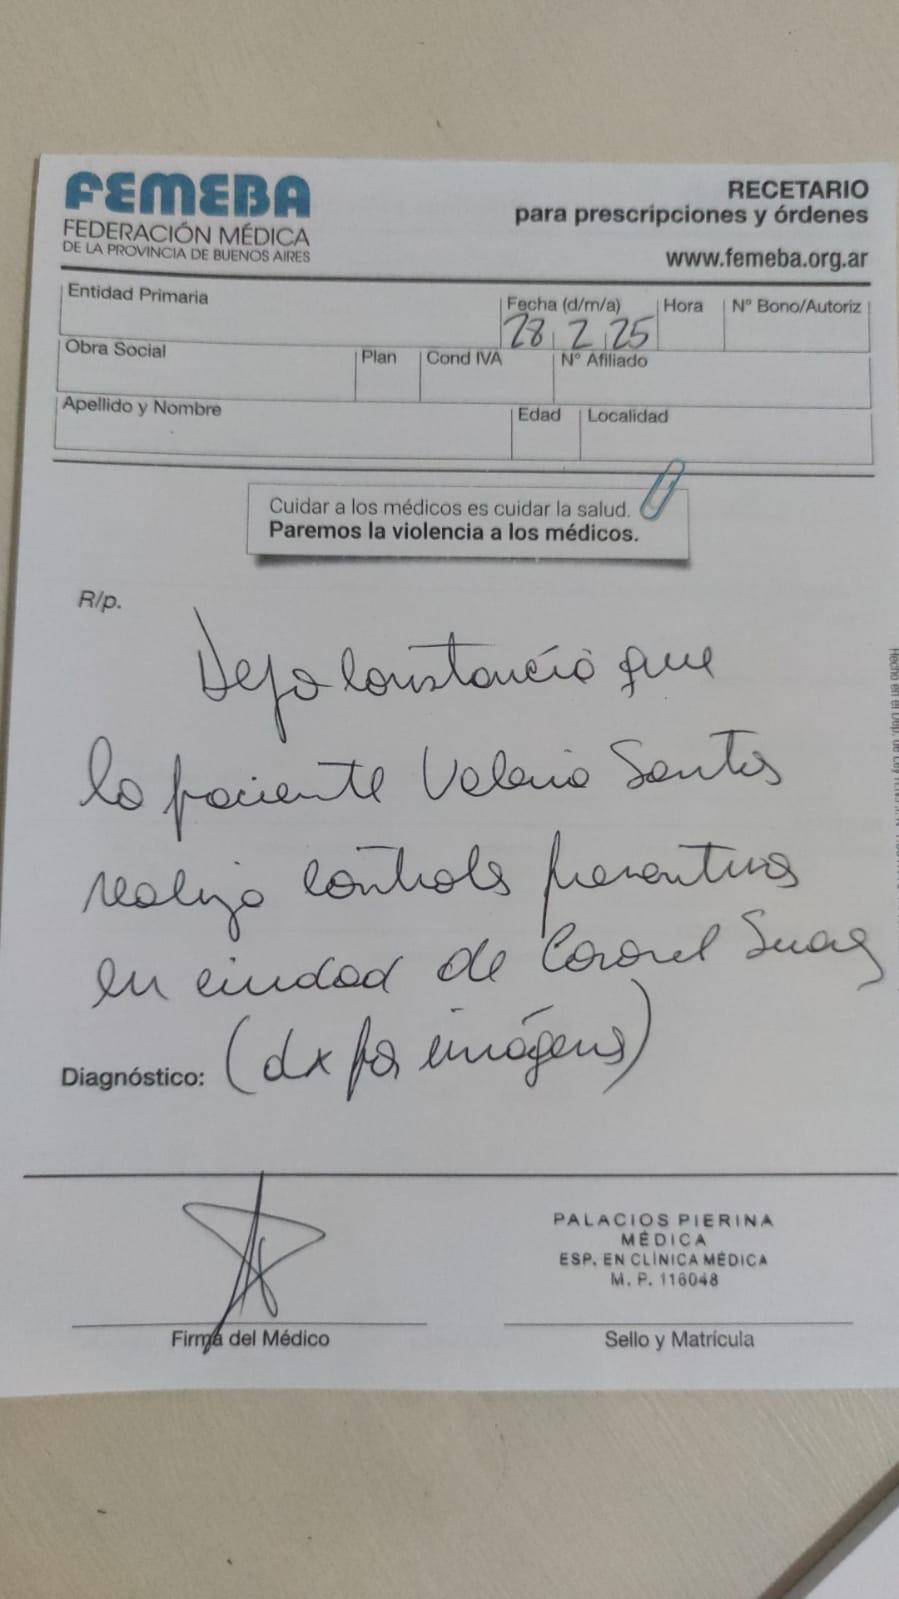 FEMEBA
FEDERACIÓN MÉDICA
DE LA PROVINCIA DE BUENOS AIRES
RECETARIO
para prescripciones y órdenes
www.femeba.org.ar
Entidad Primaria
Fecha (d/m/a)
Hora
Nº Bono/Autoriz
28 2 25
Obra Social
Plan
Cond IVA
Nº Afiliado
Apellido y Nombre
Edad
Localidad
Cuidar a los médicos es cuidar la salud.
Paremos la violencia a los médicos.
R/p.
Dejo constancia que
la paciente Valeria Santos
realizo controles preventivos
en ciudad de Coronel Suarez
(dx por imágenes)
Diagnóstico:
PALACIOS PIERINA
MÉDICA
ESP. EN CLÍNICA MÉDICA
M. P. 116048
Firma del Médico
Sello y Matrícula
Hecho en el Dep. de Ley